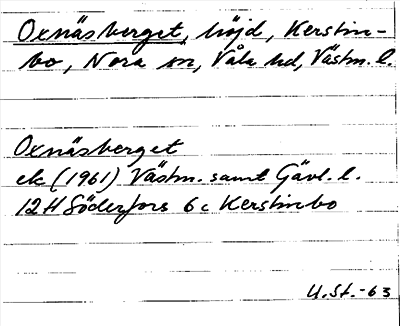 Oxnäsberget, höjd, Kerstin-
bo, Nora sn, Våla hd, Västm. l.
Oxnäsberget
ek (1961) Västm. samt Gävl. l.
12H Söderfors 6 c Kerstinbo
U.St.-63